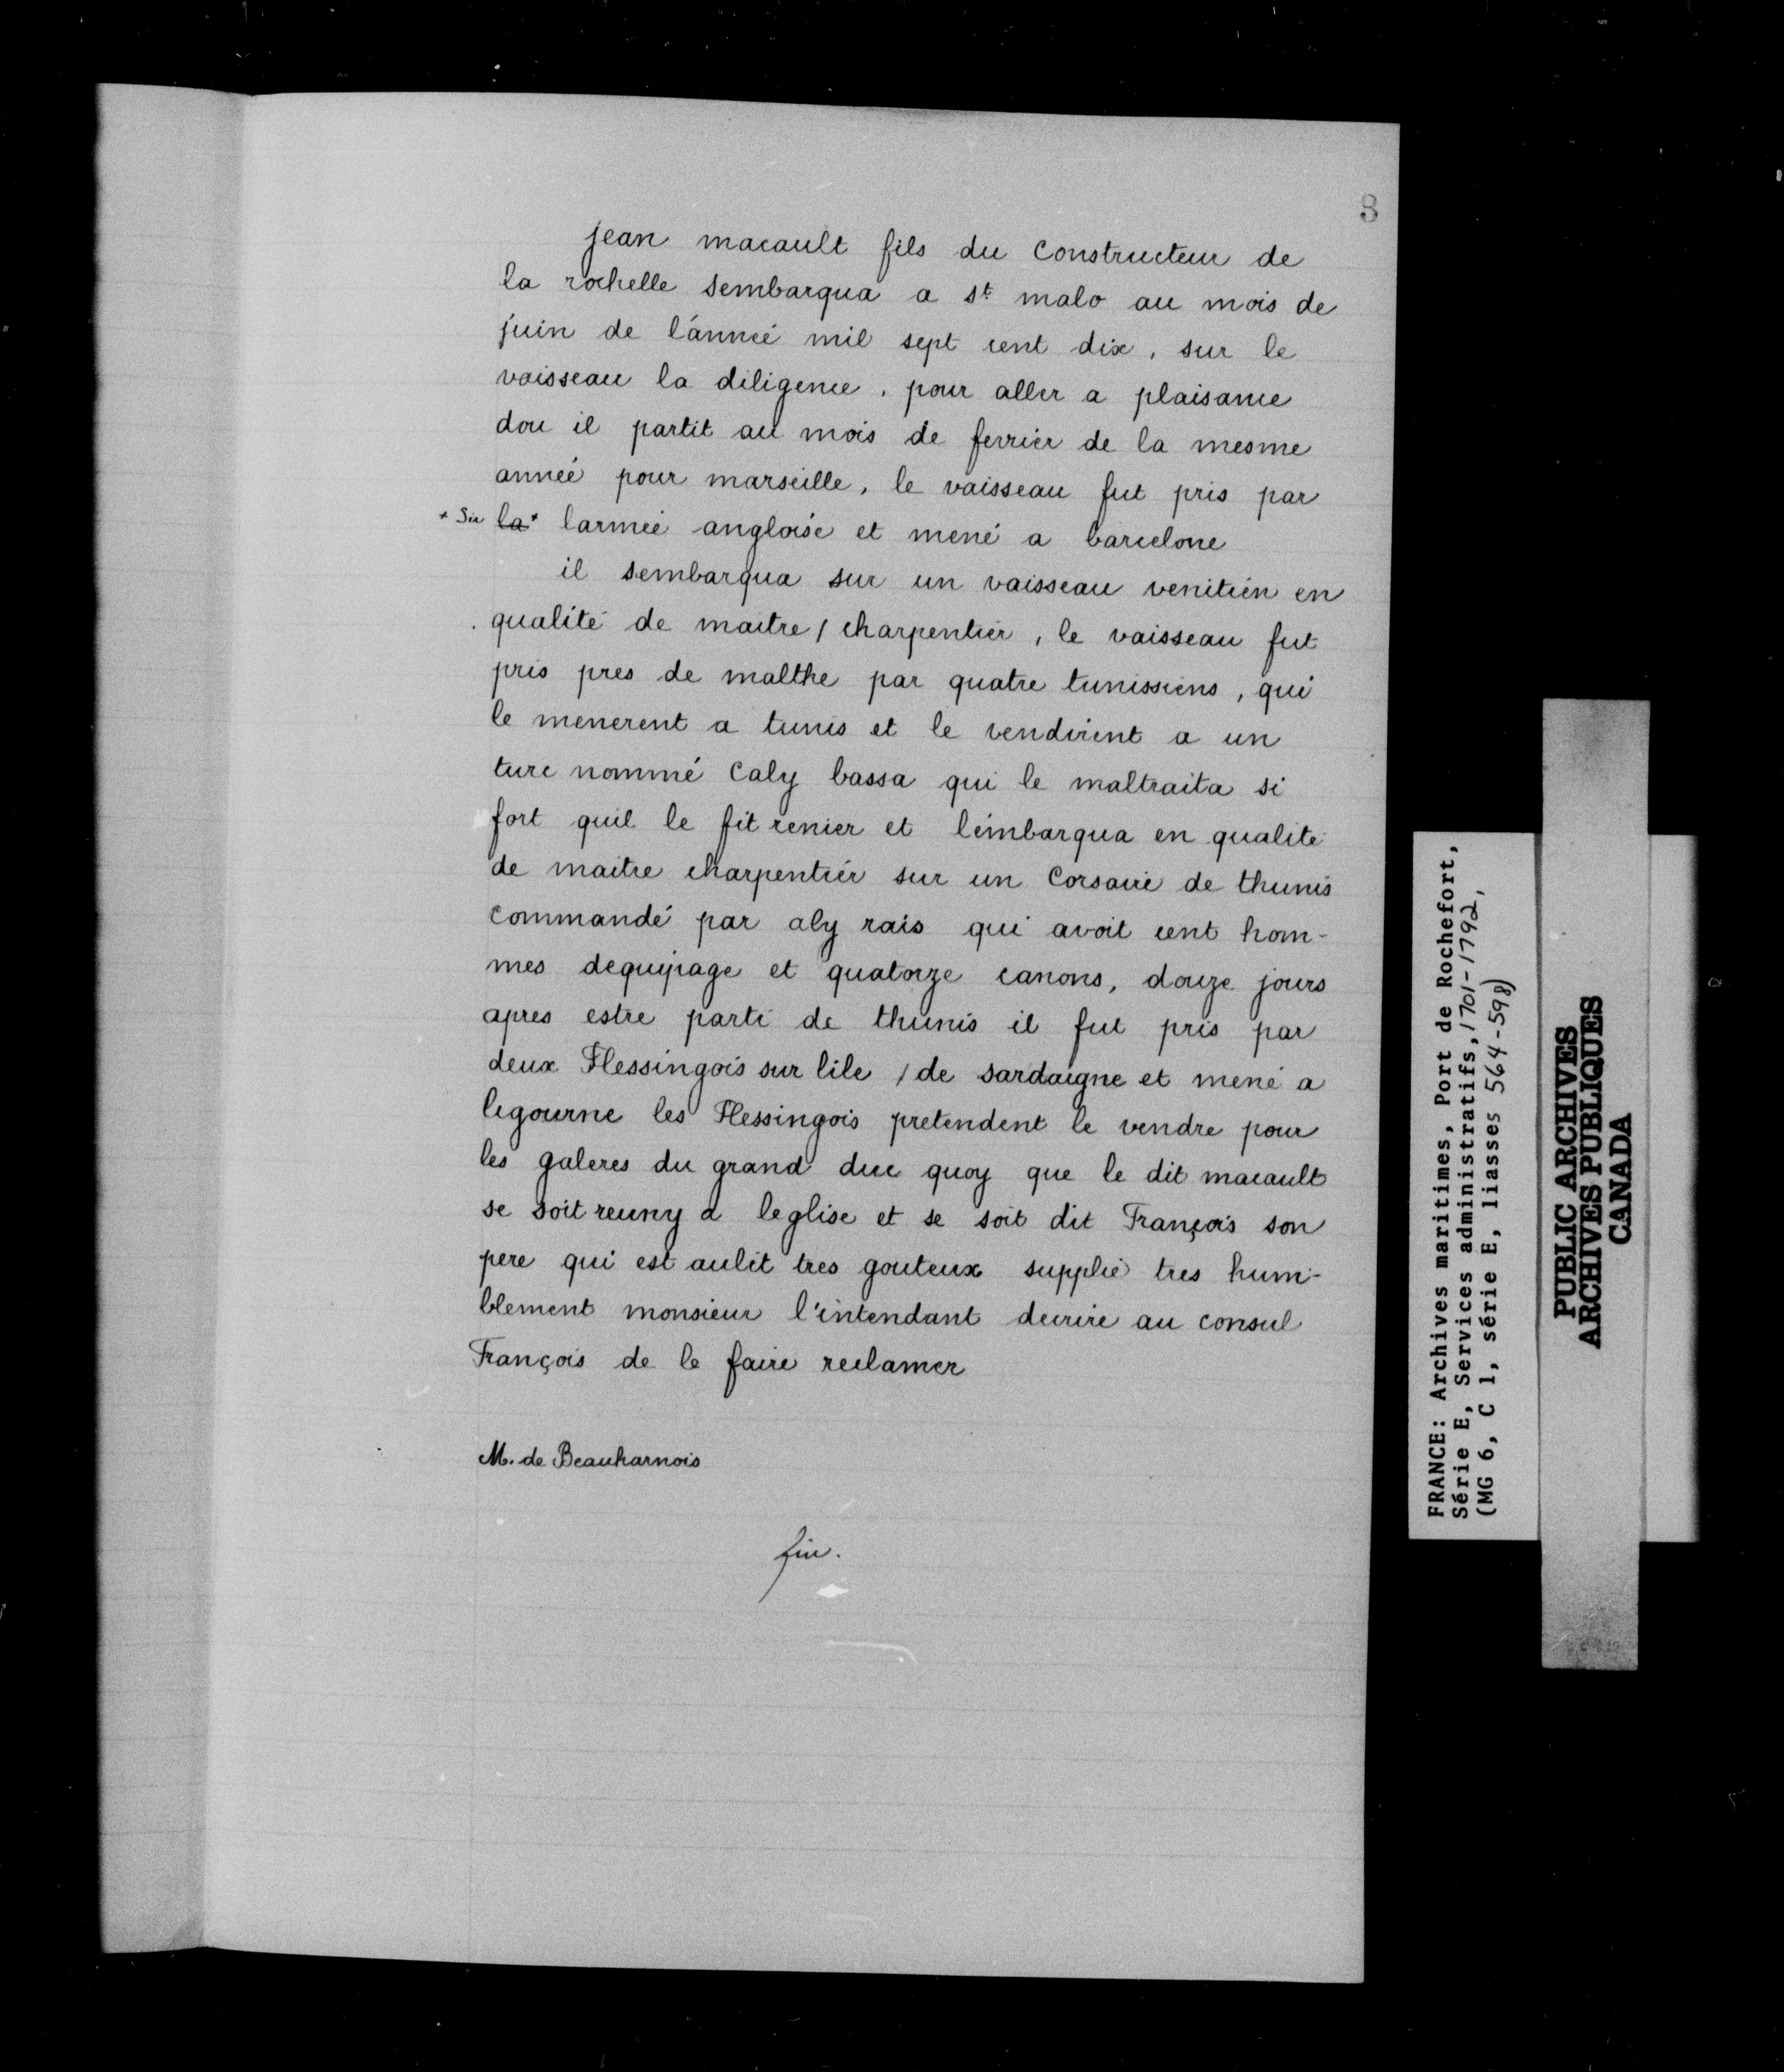 8
jean macault fils du Constructeur de
la rochelle sembarqua a st malo au mois de
juin de l'anneé mil sept cent dix, sur le
vaisseau la diligence, pour aller a plaisance
dou il partit au mois de fevrier de la mesme
anneé pour marseille, le vaisseau fut pris par
+ Sic la + larmeé angloise et mené a barcelone
il sembarqua sur un vaisseau venitien en
qualité de maitre / charpentier, le vaisseau fut
pris pres de malthe par quatre tunissiens, qui
le menerent a tunis et le vendirent a un
turc nommé Caly bassa qui le maltraita si
fort quil le fit renier et l'embarqua en qualité
de maitre charpentier sur un Corsaire de thunis
commandé par aly rais qui avoit cent hom-
mes dequipage et quatorze canons, douze jours
apres estre parti de thunis il fut pris par
deux Flessingois sur lile / de sardaigne et mené a
ligourne les Flessingois pretendent le vendre pour
les galeres du grand duc quoy que le dit macault
se soit reuny a leglise et se soit dit François son
pere qui est aulit tres gouteux supplie tres hum-
blement monsieur l'intendant decrire au consul
François de le faire reclamer
M. de Beauharnois
fin.
FRANCE: Archives maritimes, Port de Rochefort,
Série E, Services administratifs, 1701-1792,
(MG 6, C 1, série E, liasses 564-598)
PUBLIC ARCHIVES
ARCHIVES PUBLIQUES
CANADA